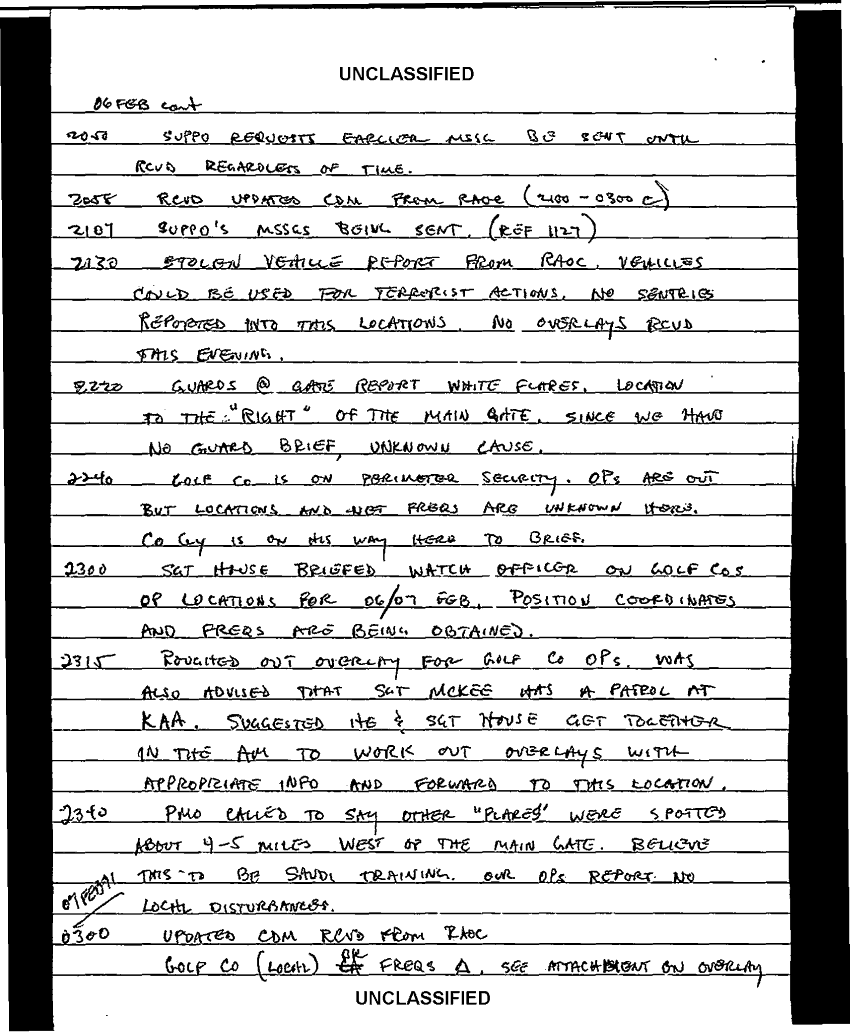 UNCLASSIFIED
06 FEB cont
2050 SUPPO REQUESTS EARLIER MSSG BE SENT UNTIL
RCVD REGARDLESS OF TIME.
2058 RCVD UPDATED CDM FROM RAOC (2100 - 0300 C)
2107 SUPPO'S MSSGS BEING SENT. (REF 1127)
2130 STOLEN VEHICLE REPORT FROM RAOC. VEHICLES
COULD BE USED FOR TERRORIST ACTIONS. NO SENTRIES
REPORTED INTO THIS LOCATIONS. NO OVERLAYS RCVD
THIS EVENING.
2220 GUARDS @ GATE REPORT WHITE FLARES. LOCATION
TO THE "RIGHT" OF THE MAIN GATE. SINCE WE HAVE
NO GUARD BRIEF, UNKNOWN CAUSE.
2240 GOLF CO IS ON PERIMETER SECURITY. OPs ARE OUT
BUT LOCATIONS AND NET FREQS ARE UNKNOWN HERE.
CO Gy IS ON HIS WAY HERE TO BRIEF.
2300 SGT HOUSE BRIEFED WATCH OFFICER ON GOLF COS
OP LOCATIONS FOR 06/07 FEB. POSITION COORDINATES
AND FREQS ARE BEING OBTAINED.
2315 ROUGHED OUT OVERLAY FOR GOLF CO OPs. WAS
ALSO ADVISED THAT SGT MCKEE HAS A PATROL AT
KAA. SUGGESTED HE & SGT HOUSE GET TOGETHER
IN THE AM TO WORK OUT OVERLAYS WITH
APPROPRIATE INFO AND FORWARD TO THIS LOCATION.
2340 PMO CALLED TO SAY OTHER "FLARES" WERE SPOTTED
ABOUT 4-5 MILES WEST OF THE MAIN GATE. BELIEVE
THIS TO BE SAUDI TRAINING. OUR OPs REPORT NO
LOCAL DISTURBANCES.
07FEB91
0300 UPDATED CDM RCVD FROM RAOC
GOLF CO (LOCAL) FREQS Δ, SEE ATTACHMENT ON OVERLAY
UNCLASSIFIED